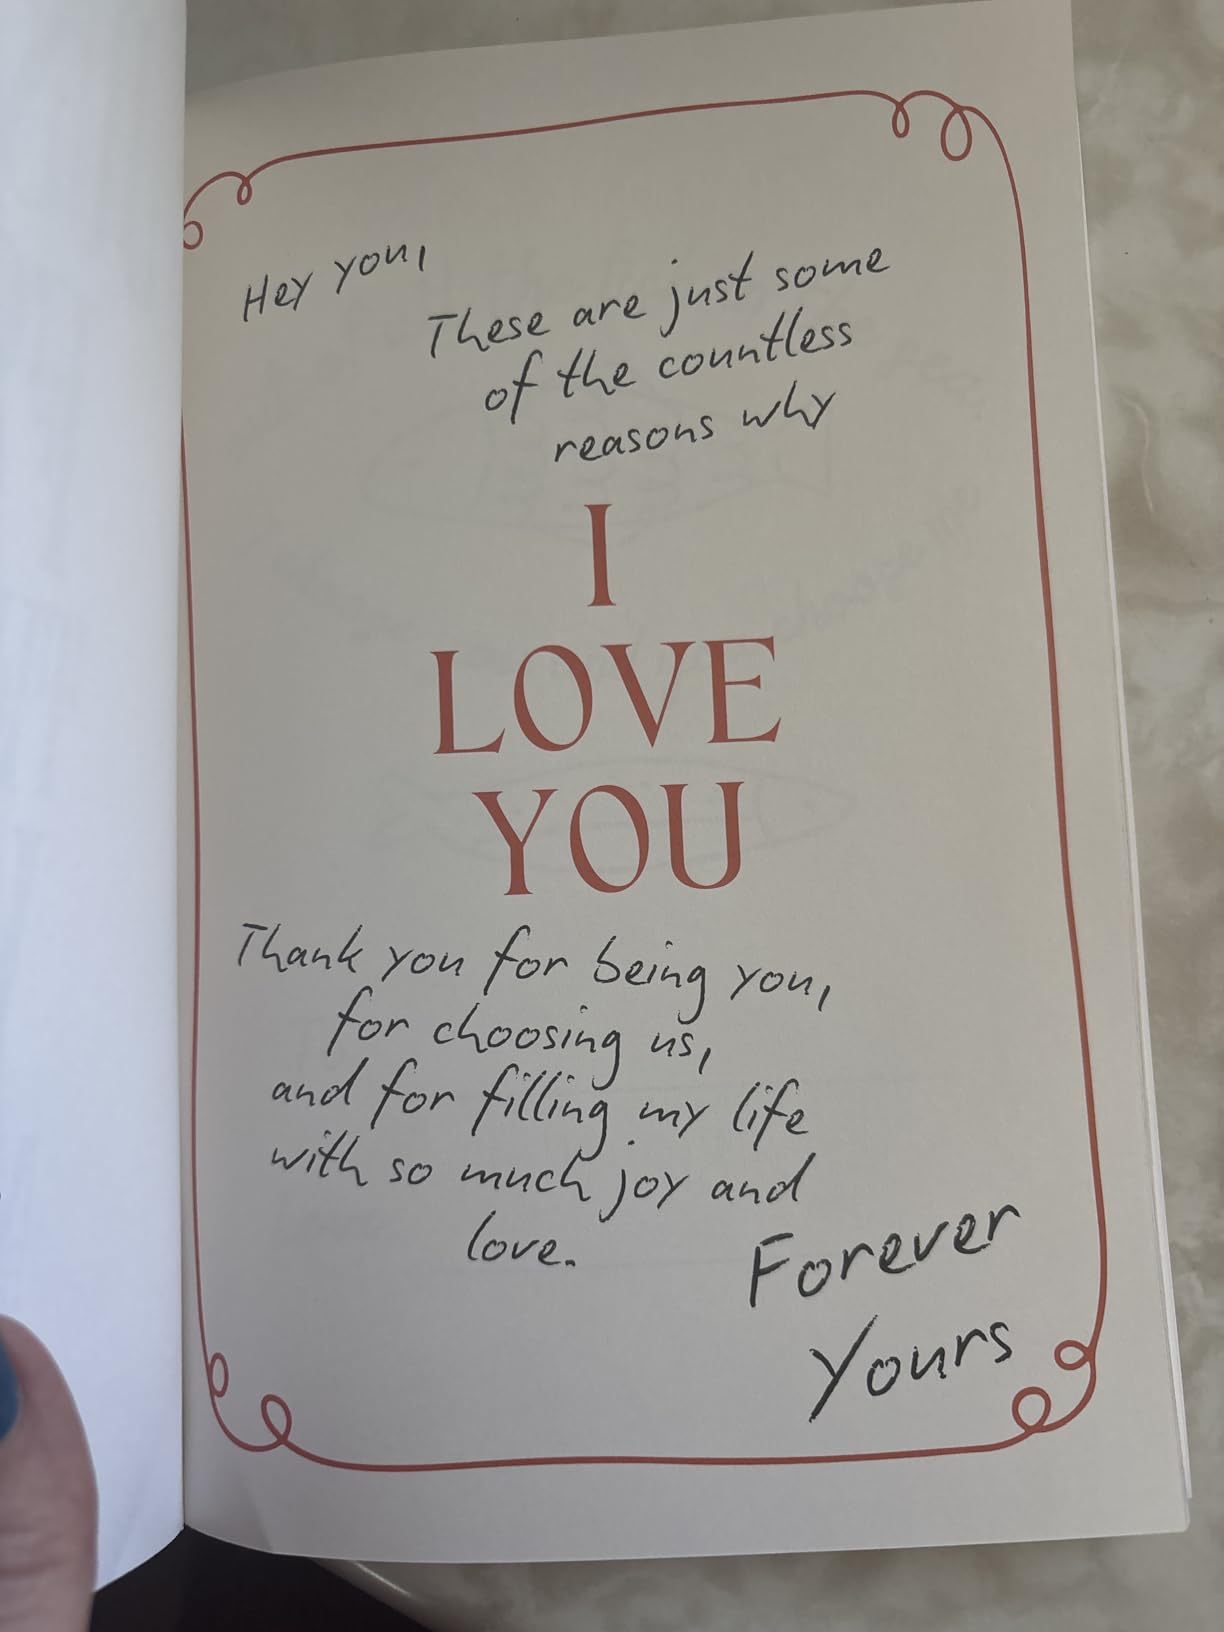 Hey you,
These are just some
of the countless
reasons why
I
LOVE
YOU
Thank you for being you,
for choosing us,
and for filling my life
with so much joy and
love.
Forever
Yours